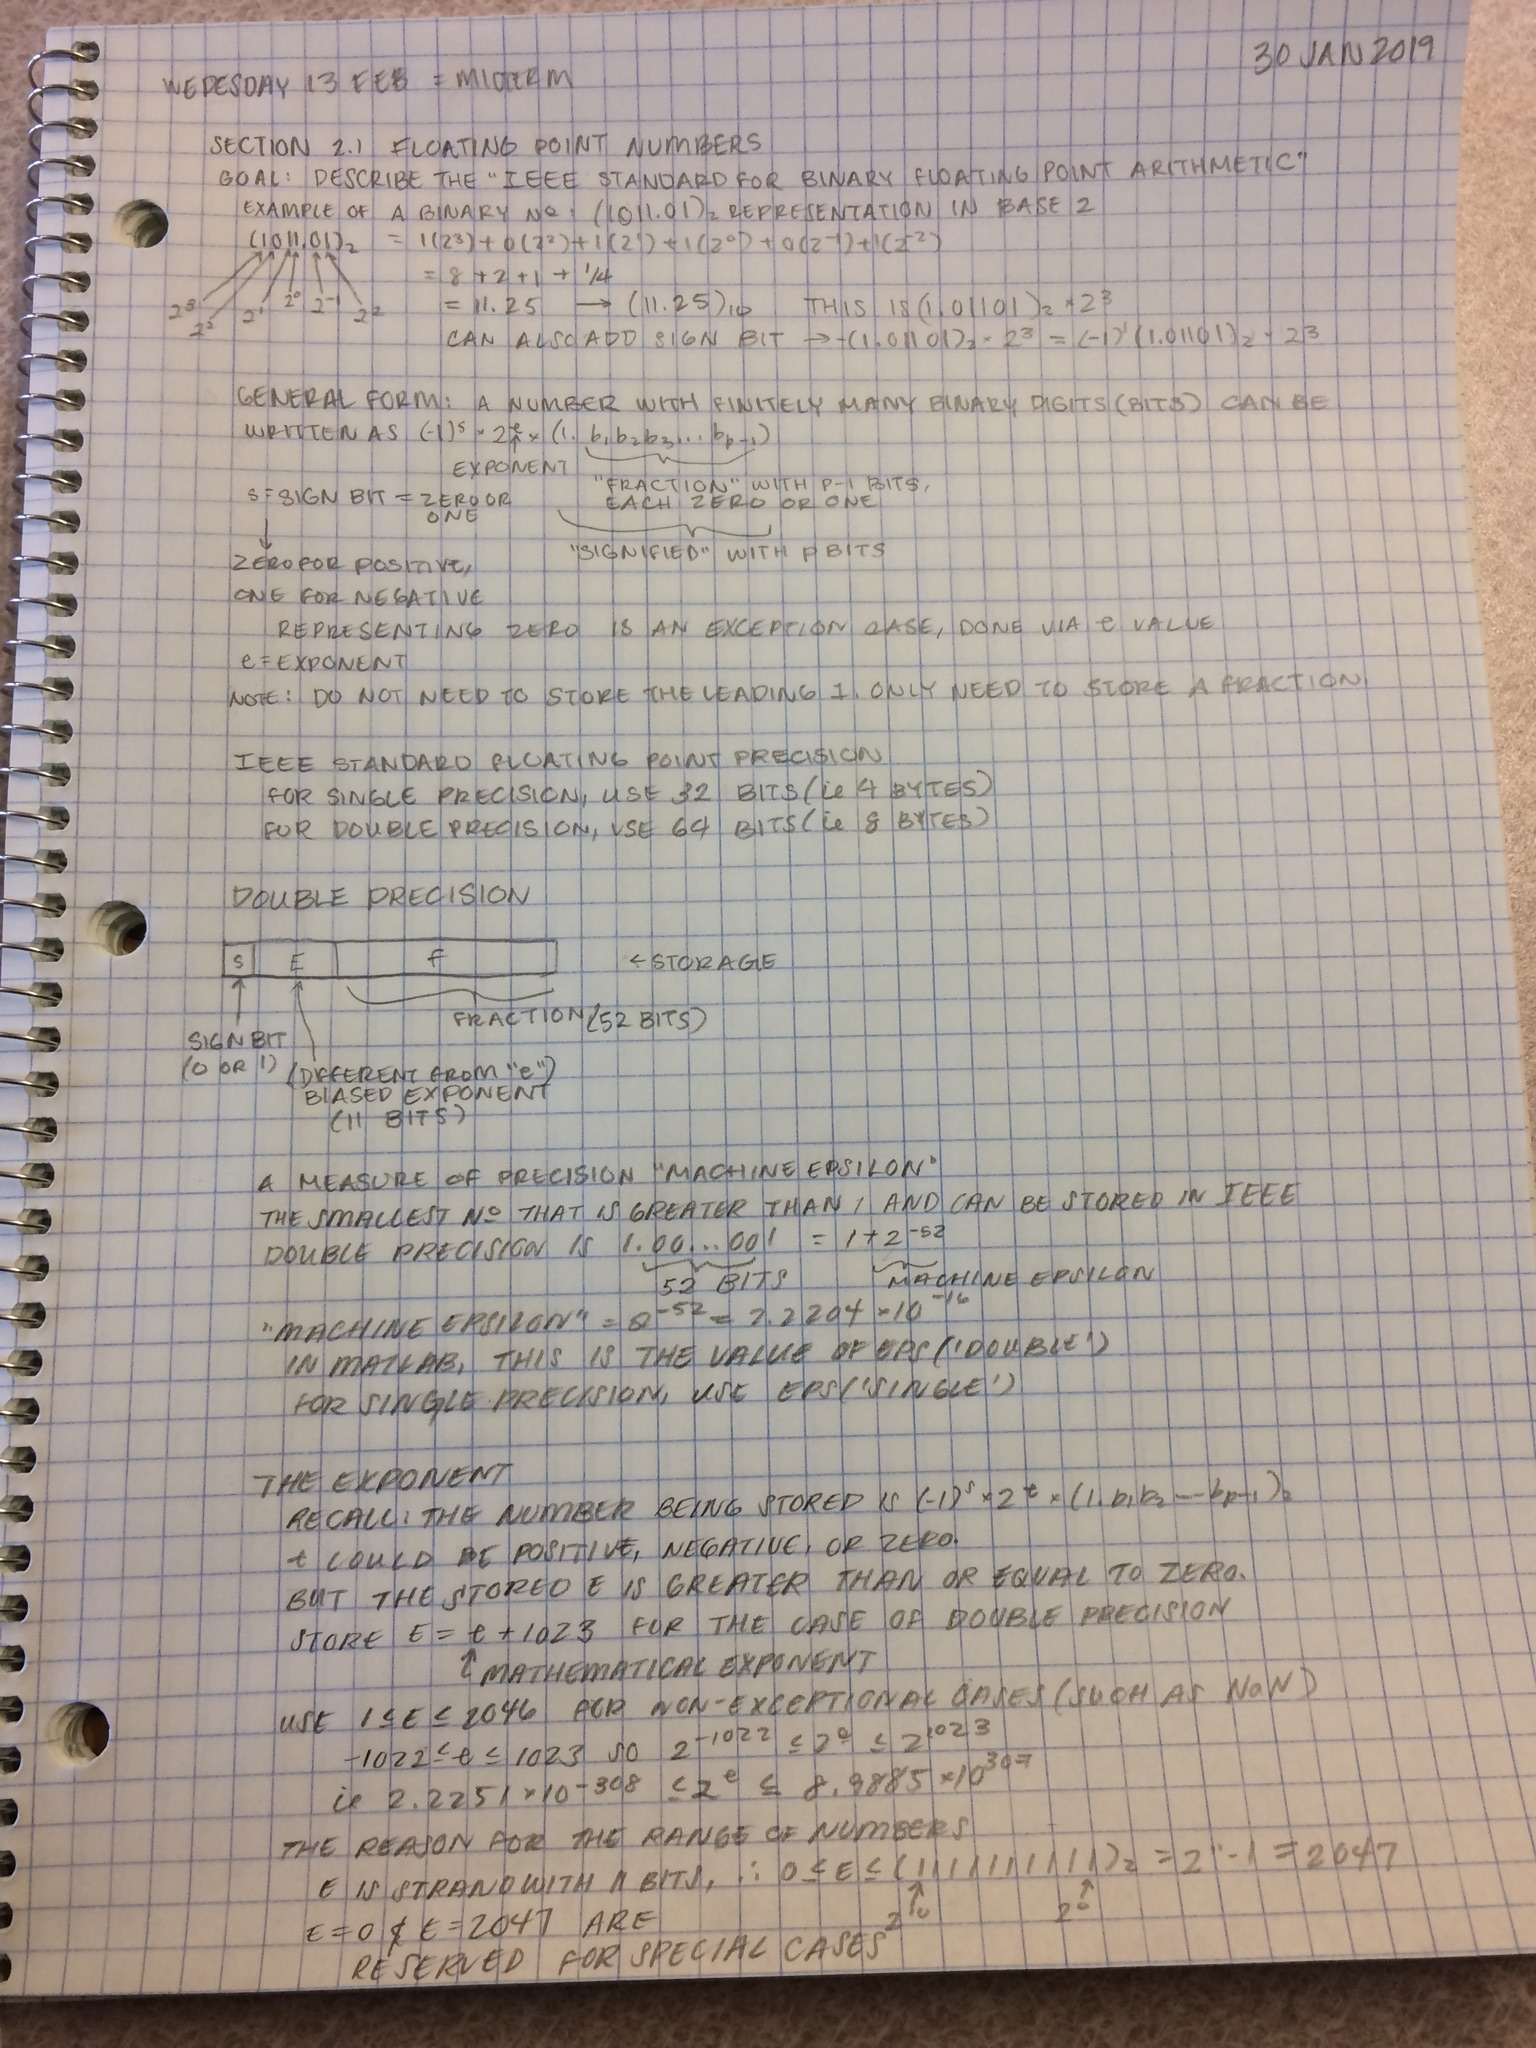 30 JAN 2019
WEDESDAY 13 FEB = MIDTERM
SECTION 2.1 FLOATING POINT NUMBERS
GOAL: DESCRIBE THE "IEEE STANDARD FOR BINARY FLOATING POINT ARITHMETIC"
EXAMPLE OF A BINARY No: (1011.01)₂ REPRESENTATION IN BASE 2
(1011.01)₂ = 1(2³)+0(2²)+1(2¹)+1(2⁰)+0(2⁻¹)+1(2⁻²)
= 8+2+1+1/4
2³ 2² 2¹ 2⁰ 2⁻¹ 2²
= 11.25 → (11.25)₁₀ THIS IS (1.01101)₂ × 2³
CAN ALSO ADD SIGN BIT → -(1.01101)₂ × 2³ = (-1)¹(1.01101)₂ × 2³
GENERAL FORM: A NUMBER WITH FINITELY MANY BINARY DIGITS (BITS) CAN BE
WRITTEN AS (-1)ˢ × 2ᵉ × (1. b₁b₂b₃... bₚ₋₁)
EXPONENT
"FRACTION" WITH P-1 BITS,
EACH ZERO OR ONE
S = SIGN BIT = ZERO OR
ONE
"SIGNIFIED" WITH P BITS
ZERO FOR POSITIVE,
ONE FOR NEGATIVE
REPRESENTING ZERO IS AN EXCEPTION CASE, DONE VIA e VALUE
e = EXPONENT
NOTE: DO NOT NEED TO STORE THE LEADING 1. ONLY NEED TO STORE A FRACTION
IEEE STANDARD FLOATING POINT PRECISION
FOR SINGLE PRECISION, USE 32 BITS (ie 4 BYTES)
FOR DOUBLE PRECISION, USE 64 BITS (ie 8 BYTES)
DOUBLE PRECISION
S E F ← STORAGE
FRACTION (52 BITS)
SIGN BIT
(0 OR 1) (DIFFERENT FROM "e")
BIASED EXPONENT
(11 BITS)
A MEASURE OF PRECISION "MACHINE EPSILON"
THE SMALLEST No THAT IS GREATER THAN 1 AND CAN BE STORED IN IEEE
DOUBLE PRECISION IS 1.00...001 = 1+2⁻⁵²
52 BITS MACHINE EPSILON
"MACHINE EPSILON" = 2⁻⁵² = 2.2204 × 10⁻¹⁶
IN MATLAB, THIS IS THE VALUE OF EPS('DOUBLE')
FOR SINGLE PRECISION, USE EPS('SINGLE')
THE EXPONENT
RECALL: THE NUMBER BEING STORED IS (-1)ˢ × 2ᵉ × (1. b₁b₂---bₚ₋₁)₂
e COULD BE POSITIVE, NEGATIVE, OR ZERO.
BUT THE STORED E IS GREATER THAN OR EQUAL TO ZERO.
STORE E = e + 1023 FOR THE CASE OF DOUBLE PRECISION
↑ MATHEMATICAL EXPONENT
USE 1 ≤ E ≤ 2046 FOR NON-EXCEPTIONAL CASES (SUCH AS NaN)
-1022 ≤ e ≤ 1023 SO 2⁻¹⁰²² ≤ 2ᵉ ≤ 2¹⁰²³
ie 2.2251 × 10⁻³⁰⁸ ≤ 2ᵉ ≤ 8.9885 × 10³⁰⁷
THE REASON FOR THE RANGE OF NUMBERS
E IS STRAND WITH 11 BITS, ∴ 0 ≤ E ≤ (11111111111)₂ = 2¹¹-1 = 2047
2¹⁰ 2⁰
E=0 & E=2047 ARE
RESERVED FOR SPECIAL CASES